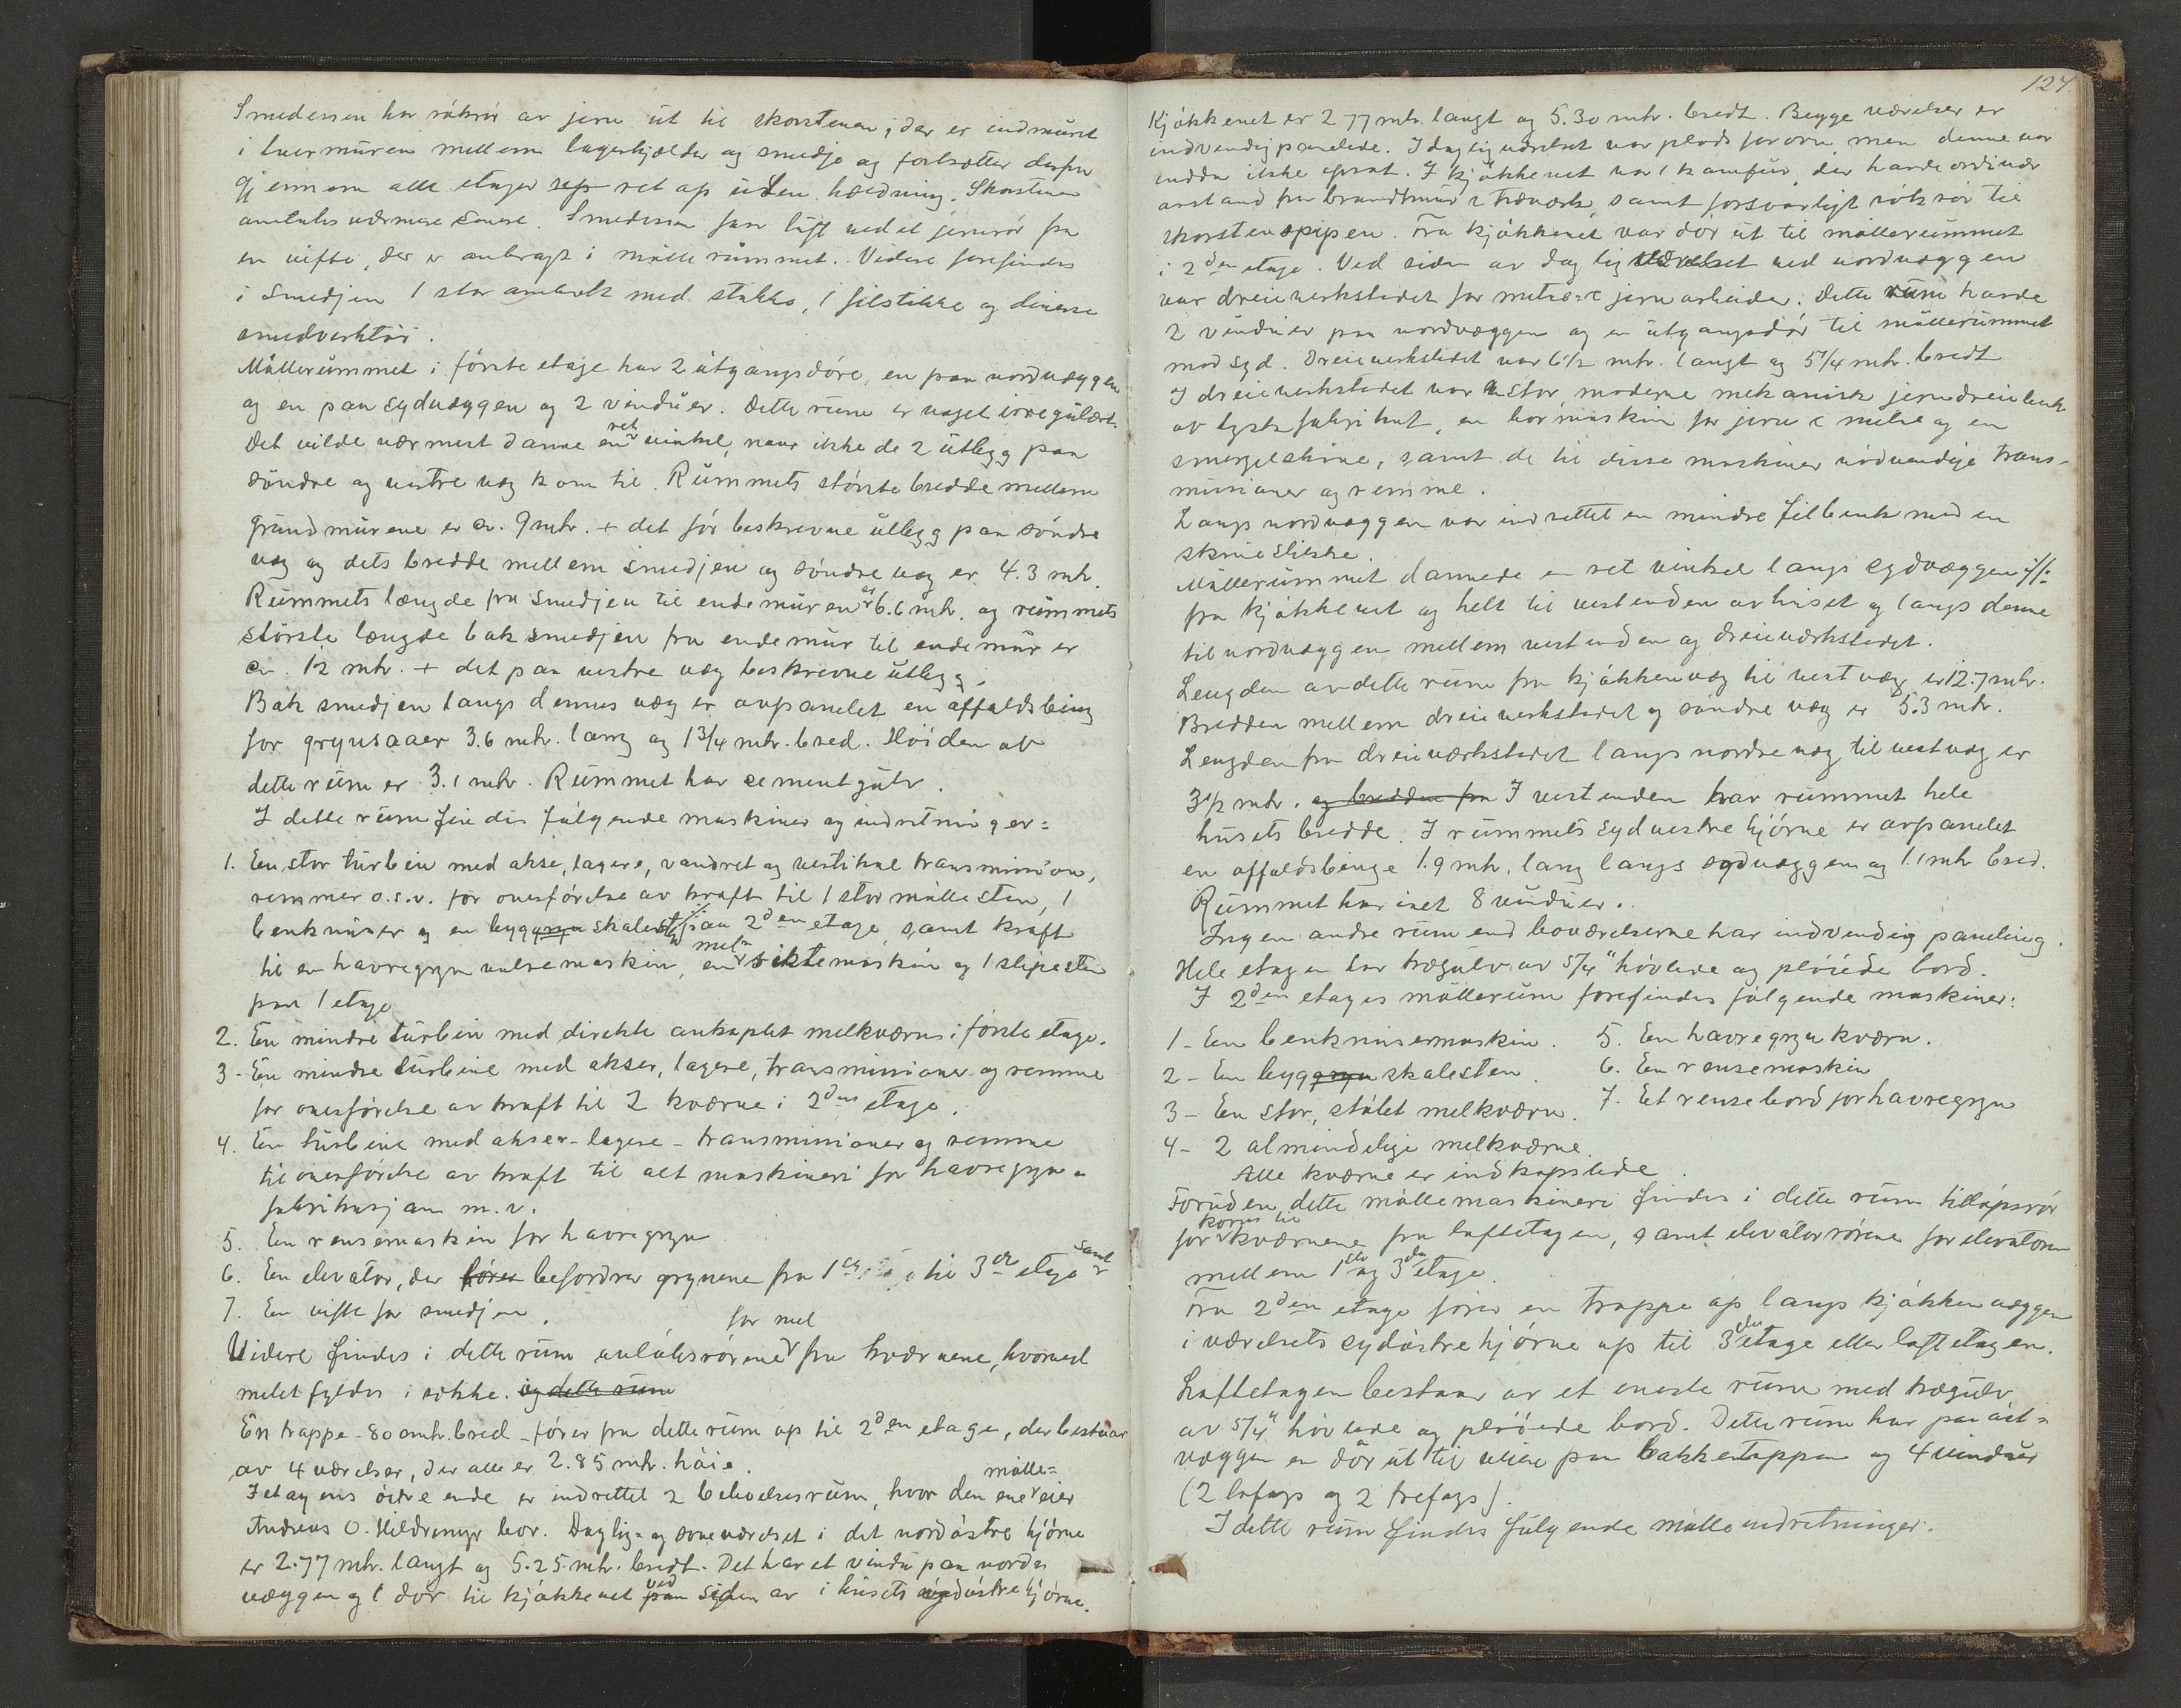 Smedessen har rökrör av jern ut til skorstenen, der er indmuret
i tvermuren mellem lagerkjælder og smedje og fortsætter derfra
gjennem alle etager ret op uden hældning. Skorstenen
omtales nærmere senere. Smedessen faar luft ved et jernrör fra
en vifte, der er anbragt i mölle rummet. Videre forefindes
i Smedjen 1 stor ambolt med stokke, 1 filstikke og diverse
smedverktöi.
Möllerummet i förste etage har 2 utgangsdöre, en paa nordvæggen
og en paa sydvæggen og 2 vinduer. Dette rum er noget irregulært.
Det vilde nærmest danne en ret vinkel, naar ikke de 2 utlegg paa
söndre og vestre væg kom til. Rummets störste bredde mellem
grundmurene er ca. 9 mtr. + det för beskrevne utlegg paa söndre
væg og dets bredde mellem smedjen og söndre væg er 4.3 mtr.
Rummets længde fra smedjen til endemuren er 6.6 mtr. og rummets
störste længde bak smedjen fra endemur til endemur er
ca. 12 mtr. + det paa vestre væg beskrevne utlegg.
Bak smedjen langs dennes væg er avpanelet en affaldsbing
for grynsaaer 3.6 mtr. lang og 1 3/4 mtr. bred. Höiden av
dette rum er 3.1 mtr. Rummet har cementgulv.
I dette rum findes fölgende maskiner og indretninger:
1. En stor turbin med akse, lagere, vandret og vertikal transmission,
remmer o.s.v. for overförelse av kraft til 1 stor möllesten, 1
benknuser og en bygggryn skalesten i 2den etage, samt kraft
til en havregryn valsemaskin, en mel- siktemaskin og 1 slipesten
paa 1 etage
2. En mindre turbin med direkte ankoplet melkværn i förste etage.
3 - En mindre turbine med akser, lagere, transmissioner og remme
for overförelse av kraft til 2 kværne i 2den etage.
4. En turbine med akser - lagere - transmissioner og remme
til overförelse av kraft til alt maskineri for havregryn-
fabrikasjon m.v.
5. En rensemaskin for havregryn
6. En elevator, der förer befordrer grynene fra 1ste til 3die etage samt
7. En vifte for smedjen.
Videre findes i dette rum avlöbsrörene for mel fra kværnene, hvorved
melet fyldes i sekke. og dette rum
En trappe - 80 cmtr. bred - förer fra dette rum op til 2den etage, der bestaar
av 4 værelser, der alle er 2.85 mtr. höie.
I etagens östre ende er indrettet 2 beboelsesrum, hvor den ene mölle-eier
Andreas O. Hildremyr bor. Daglig- og soveværelset i det nordöstre hjörne
er 2.77 mtr. langt og 5.25 mtr. bredt. Det har et vindu paa nord-
væggen og 1 dör til kjökkenet ved paa siden av i husets sydöstre hjörne.
124
Kjökkenet er 2 77 mtr. langt og 5.30 mtr. bredt. Begge værelser er
indvendig panelede. I daglig værelset var plads for ovn, men denne var
endda ikke opsat. I kjökkenet var 1 komfur, der havde ordinær
avstand fra brandmur & træverk, samt forsvarligt rökrör til
skorstenspipen. Fra kjökkenet var dör ut til möllerummet
i 2den etage. Ved siden av daglig værelset ved nordvæggen
var dreieverkstedet for metal & jernarbeider. Dette rum havde
2 vinduer paa nordvæggen og en utgangsdör til möllerummet
mod syd. Dreieverkstedet var 6 1/2 mtr. langt og 5 1/4 mtr. bredt
I dreieverkstedet var 1 stor, moderne mekanisk jerndreiebenk
av tysk fabrikat, en bormaskin for jern & metal og en
smergelskive, samt de til disse maskiner nödvendige trans-
missioner og remme.
Langs nordvæggen var indrettet en mindre filbenk med en
skruestikke.
Möllerummet dannede en ret vinkel langs sydvæggen
fra kjökkenet og helt til vestenden av huset og langs denne
til nordvæggen mellem vestenden og dreieverkstedet.
Lengden av dette rum fra kjökkenvæg til vestvæg er 12.7 mtr.
Bredden mellem dreieverkstedet og söndre væg er 5.3 mtr.
Lengden fra dreieverkstedet langs nordre væg til vestvæg er
3 1/2 mtr. og bredden fra I vestenden har rummet hele
husets bredde. I rummets sydvestre hjörne er avpanelet
en affaldsbinge 1.9 mtr. lang langs sydvæggen og 1.1 mtr bred.
Rummet har ialt 8 vinduer.
Ingen andre rum end boværelserne har indvendig paneling.
Hele etagen har trægulv av 5/4" hövlede og plöiede bord.
I 2den etages möllerum forefindes fölgende maskiner:
1 - En benknusermaskin.
2 - En bygggryn skalesten.
3 - En stor, stålet melkværn.
4 - 2 almindelige melkværne.
5. En havregryn kværn.
6. En rensemaskin
7. Et rensebord for havregryn
Alle kværne er indkapslede.
Foruden dette möllemaskineri findes i dette rum tillöpsrör
for kornet til kværnene fra loftetagen, samt elevatorrörene for elevatoren
mellem 1ste og 3die etage.
Fra 2den etage förer en trappe op langs kjökkenvæggen
i værelsets sydöstre hjörne op til 3die etage eller loftetagen.
Loftetagen bestaar av et eneste rum med trægulv
av 5/4" hövlede og plöiede bord. Dette rum har paa öst-
væggen en dör ut til veien paa bakketoppen og 4 vinduer
(2 tofags og 2 trefags).
I dette rum findes fölgende mölleindretninger: